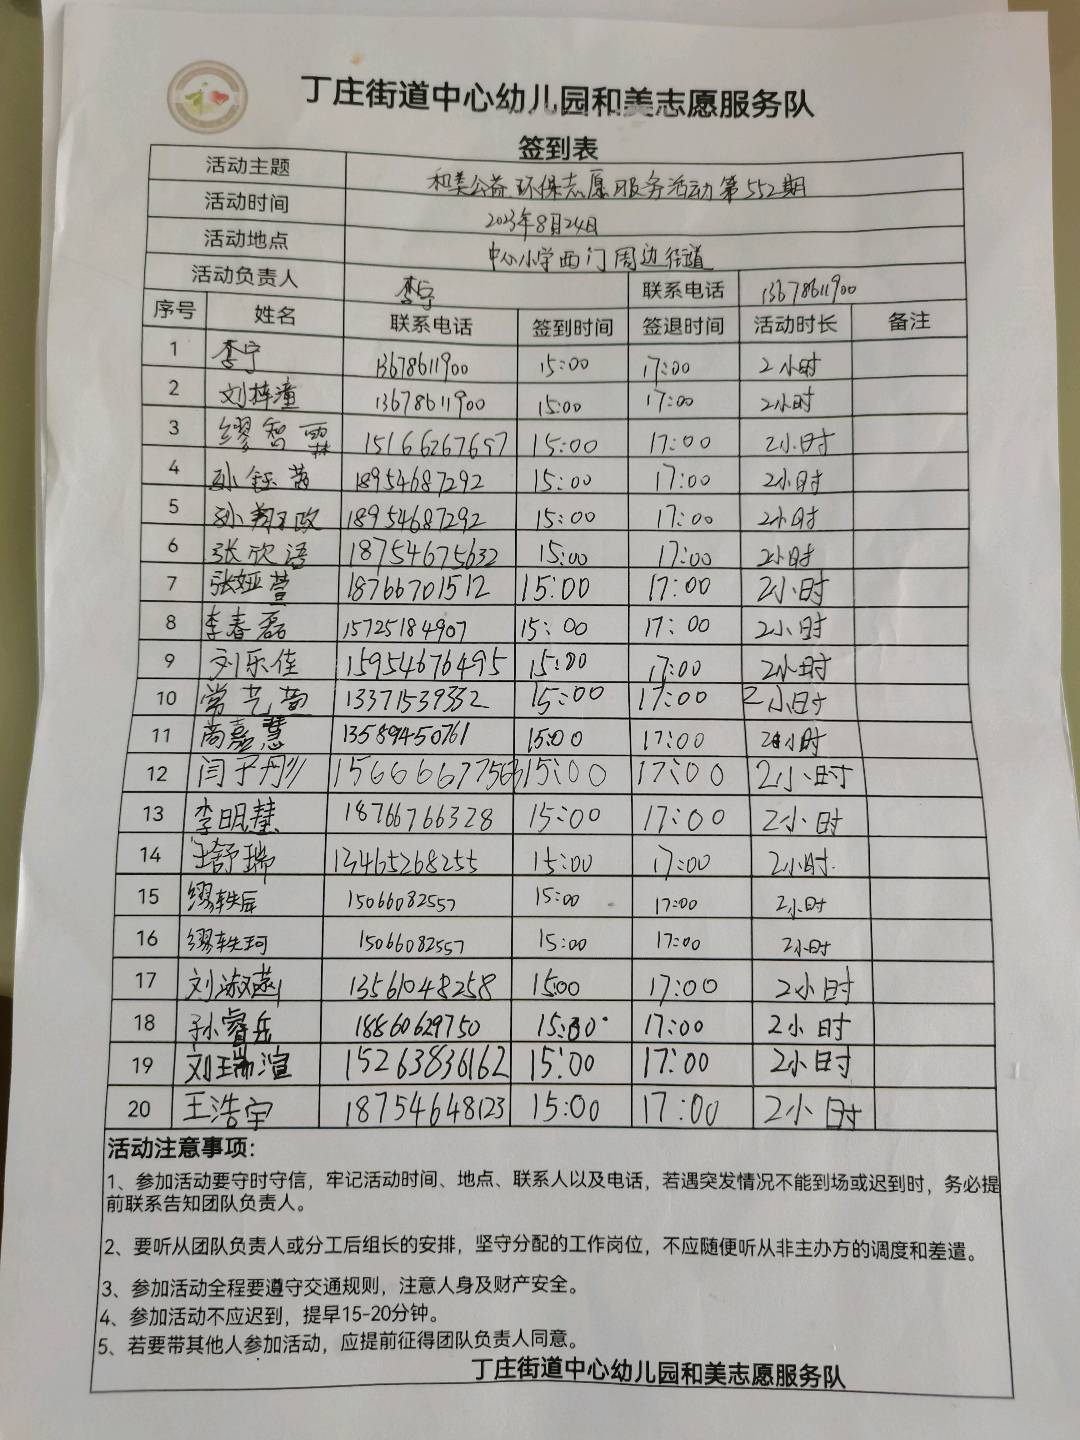 丁庄街道中心幼儿园和美志愿服务队
签到表
活动主题 和美公益环保志愿服务活动第552期
活动时间 2023年8月24日
活动地点 中心小学西门周边街道
活动负责人 李宁 联系电话 13678611900
序号 姓名 联系电话 签到时间 签退时间 活动时长 备注
1 李宁 13678611900 15:00 17:00 2小时
2 刘梓潼 13678611900 15:00 17:00 2小时
3 缪智霖 15166267697 15:00 17:00 2小时
4 孙钰茜 18954687292 15:00 17:00 2小时
5 孙翔政 18954687292 15:00 17:00 2小时
6 张欣语 18754675632 15:00 17:00 2小时
7 张娅萱 18766701512 15:00 17:00 2小时
8 李春磊 15725184907 15:00 17:00 2小时
9 刘乐佳 15954676495 15:00 17:00 2小时
10 常艺萱 13371539332 15:00 17:00 2小时
11 尚嘉慧 13589450761 15:00 17:00 2小时
12 闫子彤 15666677563 15:00 17:00 2小时
13 李明慧 18766766328 15:00 17:00 2小时
14 王舒瑞 13465268255 15:00 17:00 2小时
15 缪轶 15066082557 15:00 17:00 2小时
16 缪轶珂 15066082557 15:00 17:00 2小时
17 刘淑 13561048258 15:00 17:00 2小时
18 孙睿岳 18860629750 15:00 17:00 2小时
19 刘瑞渲 15263836162 15:00 17:00 2小时
20 王浩宇 18754648123 15:00 17:00 2小时
活动注意事项:
1、参加活动要守时守信，牢记活动时间、地点、联系人以及电话，若遇突发情况不能到场或迟到时，务必提
前联系告知团队负责人。
2、要听从团队负责人或分工后组长的安排，坚守分配的工作岗位，不应随便听从非主办方的调度和差遣。
3、参加活动全程要遵守交通规则，注意人身及财产安全。
4、参加活动不应迟到，提早15-20分钟。
5、若要带其他人参加活动，应提前征得团队负责人同意。
丁庄街道中心幼儿园和美志愿服务队